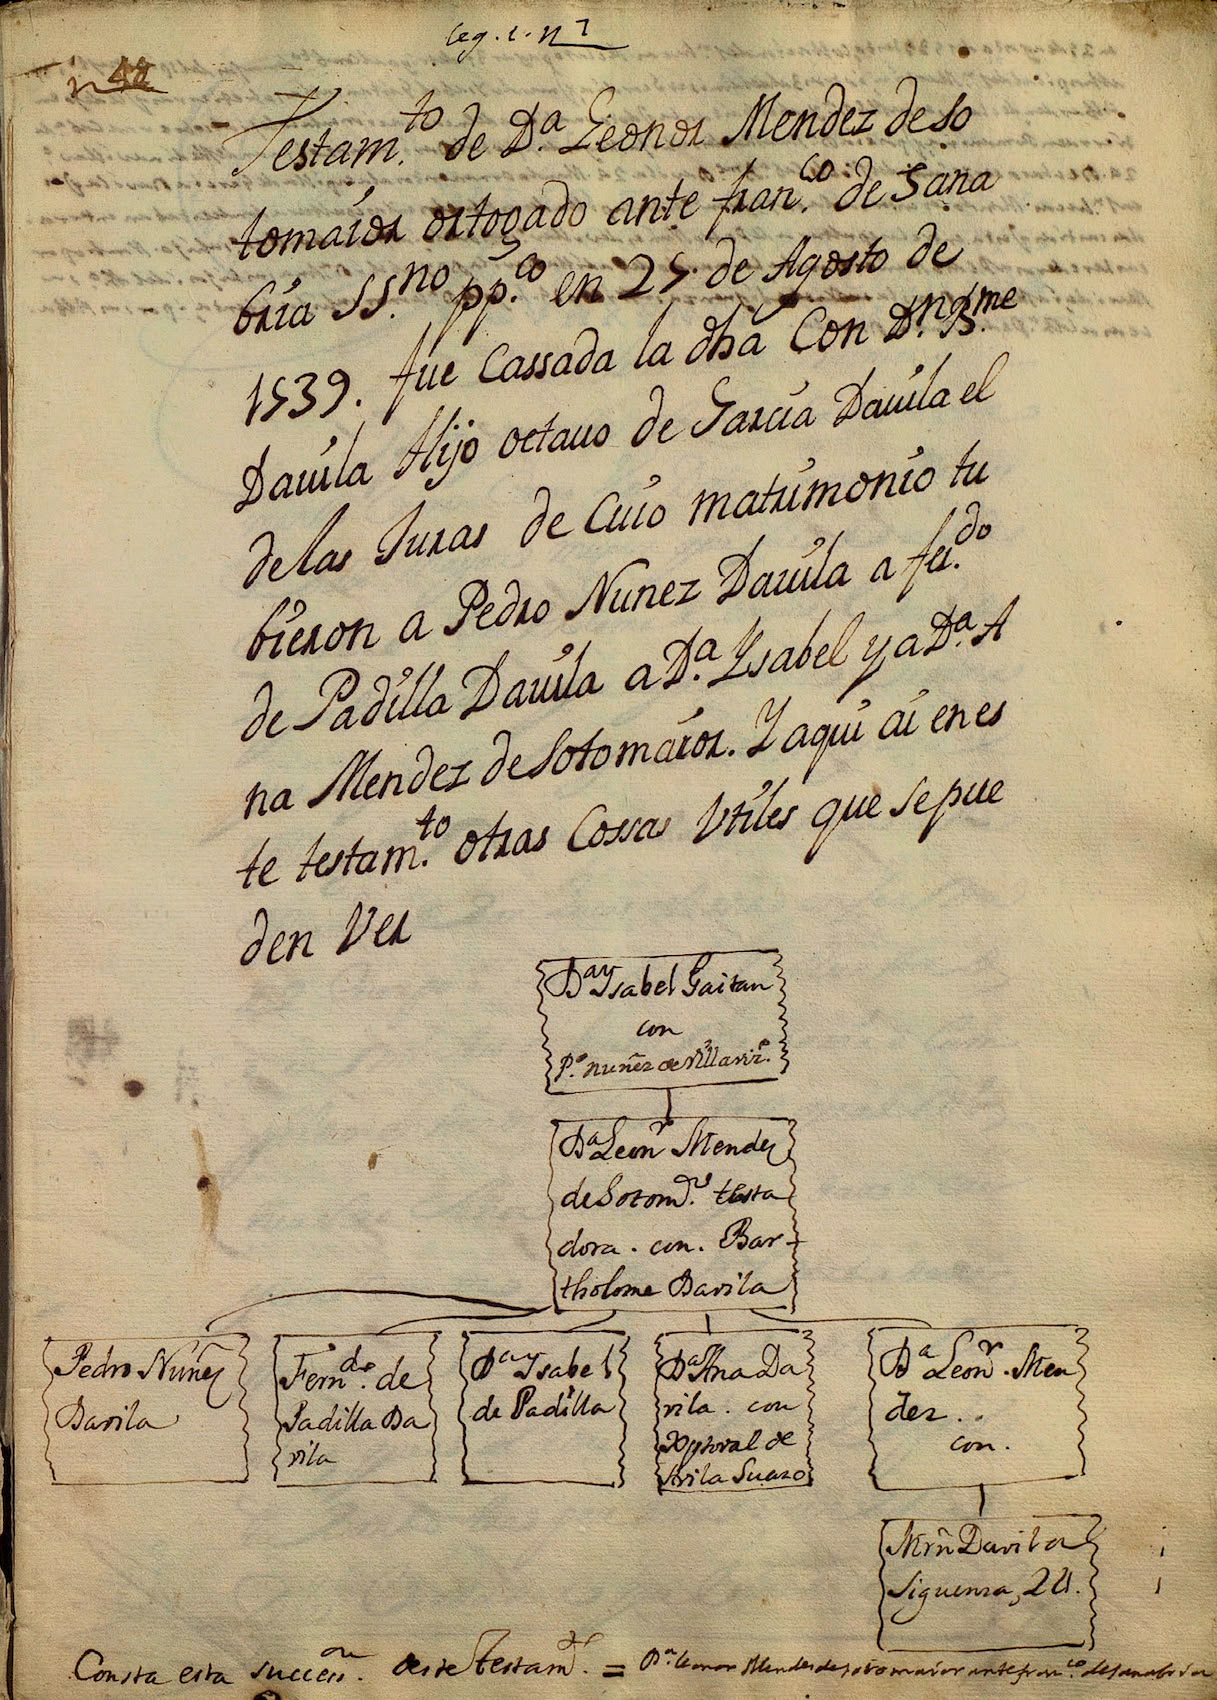 leg. 2. n 7
n 48
Testam.to de D.a Leonor Mendez de So
tomaior ortogado ante fran.co de Sana
bria SS.no pp.co en 25 de Agosto de
1539. fue Cassada la dha Con D.n B.me
Dauila Hijo octauo de Garcia Dauila el
de las Juras de Cuio matrimonio tu
bieron a Pedro Nunez Dauila a fer.do
de Padilla Dauila a D.a Ysabel y a D.a A
na Mendez de Sotomaior. Y aqui ai en es
te testam.to otras Cossas Vtiles que se pue
den Ver
Da Ysabel Gaitan
con
P.o nuñez de Villaviz.o
Da Leonr Mendez
de Sotomr. testa
dora. con. Bar-
tholome Davila
Pedro Nuñez
Davila
Fern.do de
Padilla Da
vila
Da Ysabel
de Padilla
Da Ana Da
vila. con
Xptoval de
Avila Suazo
Da Leonr. Men
dez..
con.
Mrn Davila
Siguenza,
Consta esta succeon. deste Testam.to = Da. Leonor Mendez de sotomaior ante fran.co de sanabria